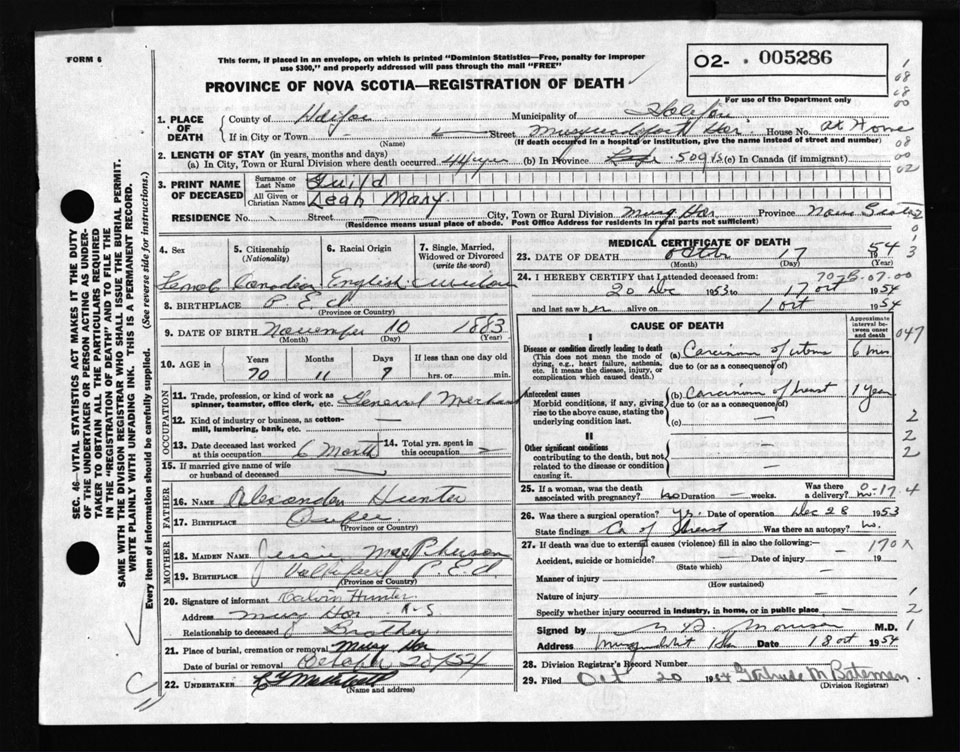 FORM 6
This form, if placed in an envelope, on which is printed "Dominion Statistics—Free, penalty for improper
use $300," and properly addressed will pass through the mail "FREE"
PROVINCE OF NOVA SCOTIA—REGISTRATION OF DEATH
O2- . 005286
For use of the Department only
1. PLACE OF DEATH
County of Halifax Municipality of Halifax
If in City or Town - Street Musquodoboit Har House No. at Home
(Name) (If death occurred in a hospital or institution, give the name instead of street and number)
2. LENGTH OF STAY (in years, months and days)
(a) In City, Town or Rural Division where death occurred 44 yrs (b) In Province 50 yrs (c) In Canada (if immigrant)
3. PRINT NAME OF DECEASED
Surname or Last Name Guild
All Given or Christian Names Leah Mary
RESIDENCE No. Street — City, Town or Rural Division Musq Har Province Nova Scotia
(Residence means usual place of abode. Post Office Address for residents in rural parts not sufficient)
4. Sex 5. Citizenship (Nationality) 6. Racial Origin 7. Single, Married, Widowed or Divorced (write the word)
Female Canadian English Widow
8. BIRTHPLACE P.E.I
(Province or Country)
9. DATE OF BIRTH November 10 1883
(Month) (Day) (Year)
10. AGE in Years Months Days If less than one day old
70 11 7 hrs. or min.
OCCUPATION
11. Trade, profession, or kind of work as spinner, teamster, office clerk, etc. General Merchant
12. Kind of industry or business, as cotton-mill, lumbering, bank, etc. —
13. Date deceased last worked at this occupation 6 Month 14. Total yrs. spent in this occupation —
15. If married give name of wife or husband of deceased —
FATHER
16. NAME Alexander Hunter
17. BIRTHPLACE
(Province or Country)
MOTHER
18. MAIDEN NAME Jessie MacPherson
19. BIRTHPLACE P.E.I
(Province or Country)
20. Signature of informant Calvin Hunter
Address Musq Har N-S
Relationship to deceased Brother
21. Place of burial, cremation or removal Musq Har
Date of burial or removal October 20/54
22. UNDERTAKER
(Name and address)
MEDICAL CERTIFICATE OF DEATH
23. DATE OF DEATH October 17 1954
(Month) (Day)
24. I HEREBY CERTIFY that I attended deceased from:
7075-07-00
20 Dec 1953 to 17 oct 1954
and last saw her alive on 1 oct 1954
CAUSE OF DEATH
Approximate interval between onset and death
I
Disease or condition directly leading to death
(This does not mean the mode of dying, e.g., heart failure, asthenia, etc. It means the disease, injury, or complication which caused death.)
(a) Carcinoma of uterus 6 mos
due to (or as a consequence of)
047
Antecedent causes
Morbid conditions, if any, giving rise to the above cause, stating the underlying condition last.
(b) Carcinoma of breast 1 year
due to (or as a consequence of)
(c)
II
Other significant conditions
contributing to the death, but not related to the disease or condition causing it.
25. If a woman, was the death associated with pregnancy? no Duration — weeks. Was there a delivery?
26. Was there a surgical operation? yes Date of operation Dec 28 1953
State findings Ca of breast Was there an autopsy? no.
27. If death was due to external causes (violence) fill in also the following:—
170X
Accident, suicide or homicide? — Date of injury — 19
(State which)
Manner of injury —
(How sustained)
Nature of injury —
Specify whether injury occurred in industry, in home, or in public place —
Signed by Morrison M.D.
Address 18 oct 1954
28. Division Registrar's Record Number
29. Filed Oct 20 1954 Gertrude M Bateman
(Division Registrar)
SEC. 46—VITAL STATISTICS ACT MAKES IT THE DUTY
OF THE UNDERTAKER OR PERSON ACTING AS UNDER-
TAKER TO OBTAIN ALL THE PARTICULARS REQUIRED
IN THE "REGISTRATION OF DEATH" AND TO FILE THE
SAME WITH THE DIVISION REGISTRAR WHO SHALL ISSUE THE BURIAL PERMIT.
WRITE PLAINLY WITH UNFADING INK. THIS IS A PERMANENT RECORD.
Every item of information should be carefully supplied. (See reverse side for instructions.)